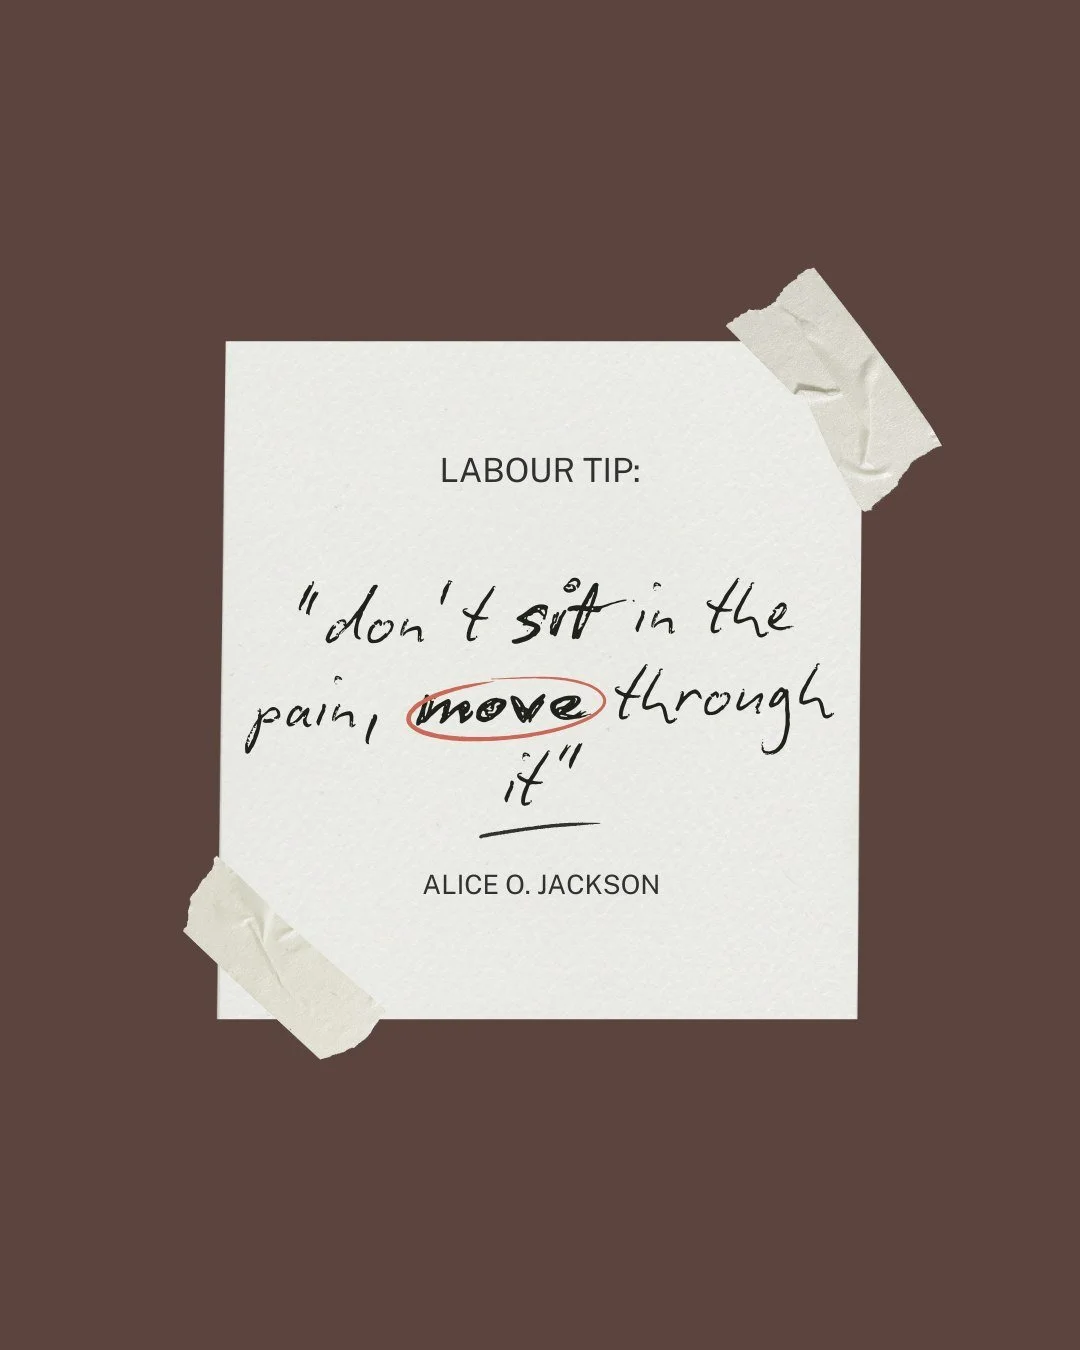 LABOUR TIP:
"don't sit in the
pain, move through
it"
ALICE O. JACKSON